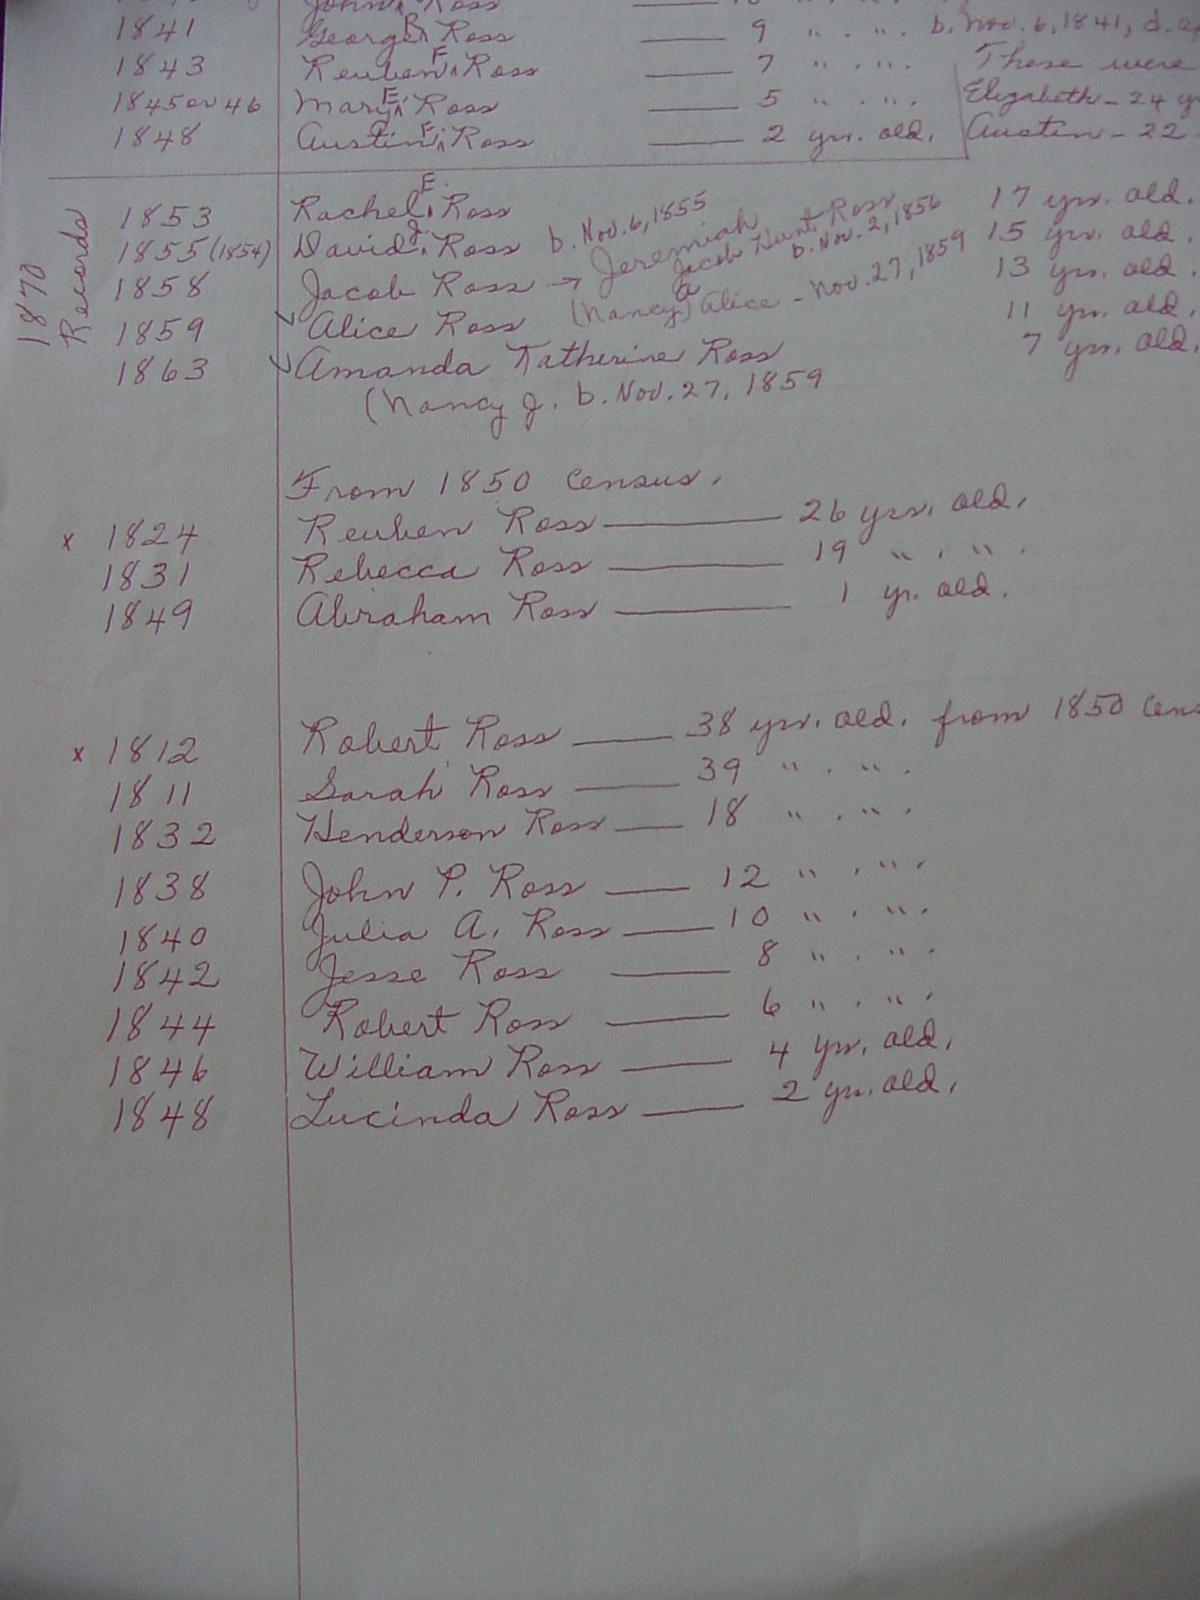 John Ross
1841 George B Ross —— 9 " . ". b. Nov. 6, 1841, d.
1843 Reuben F Ross —— 7 " " " These were
1845 or 46 Mary E Ross —— 5 " . ". Elizabeth - 24
1848 Austin F. Ross —— 2 yrs. old. Austin - 22
1870 Records
1853 Rachel E. Ross 17 yrs. old.
1855 (1854) David J. Ross b. Nov. 6, 1855 15 yrs. old.
1858 Jacob Ross → Jeremiah 13 yrs. old.
Jacob Hunt Ross
b. Nov. 2, 1856
✓ 1859 Alice Ross (Nancy) a Alice - Nov. 27, 1859 11 yrs. old.
✓ 1863 Amanda Katherine Ross 7 yrs. old.
(Nancy J. b. Nov. 27, 1859
From 1850 Census.
x 1824 Reuben Ross —— 26 yrs. old.
1831 Rebecca Ross —— 19 " . " .
1849 Abraham Ross —— 1 yr. old.
x 1812 Robert Ross —— 38 yrs. old. from 1850 Cens
1811 Sarah Ross —— 39 " . " .
1832 Henderson Ross —— 18 " . " .
1838 John P. Ross —— 12 " . " .
1840 Julia A. Ross —— 10 " . " .
1842 Jesse Ross —— 8 " . " .
1844 Robert Ross —— 6 " . " .
1846 William Ross —— 4 yrs. old.
1848 Lucinda Ross —— 2 yrs. old.